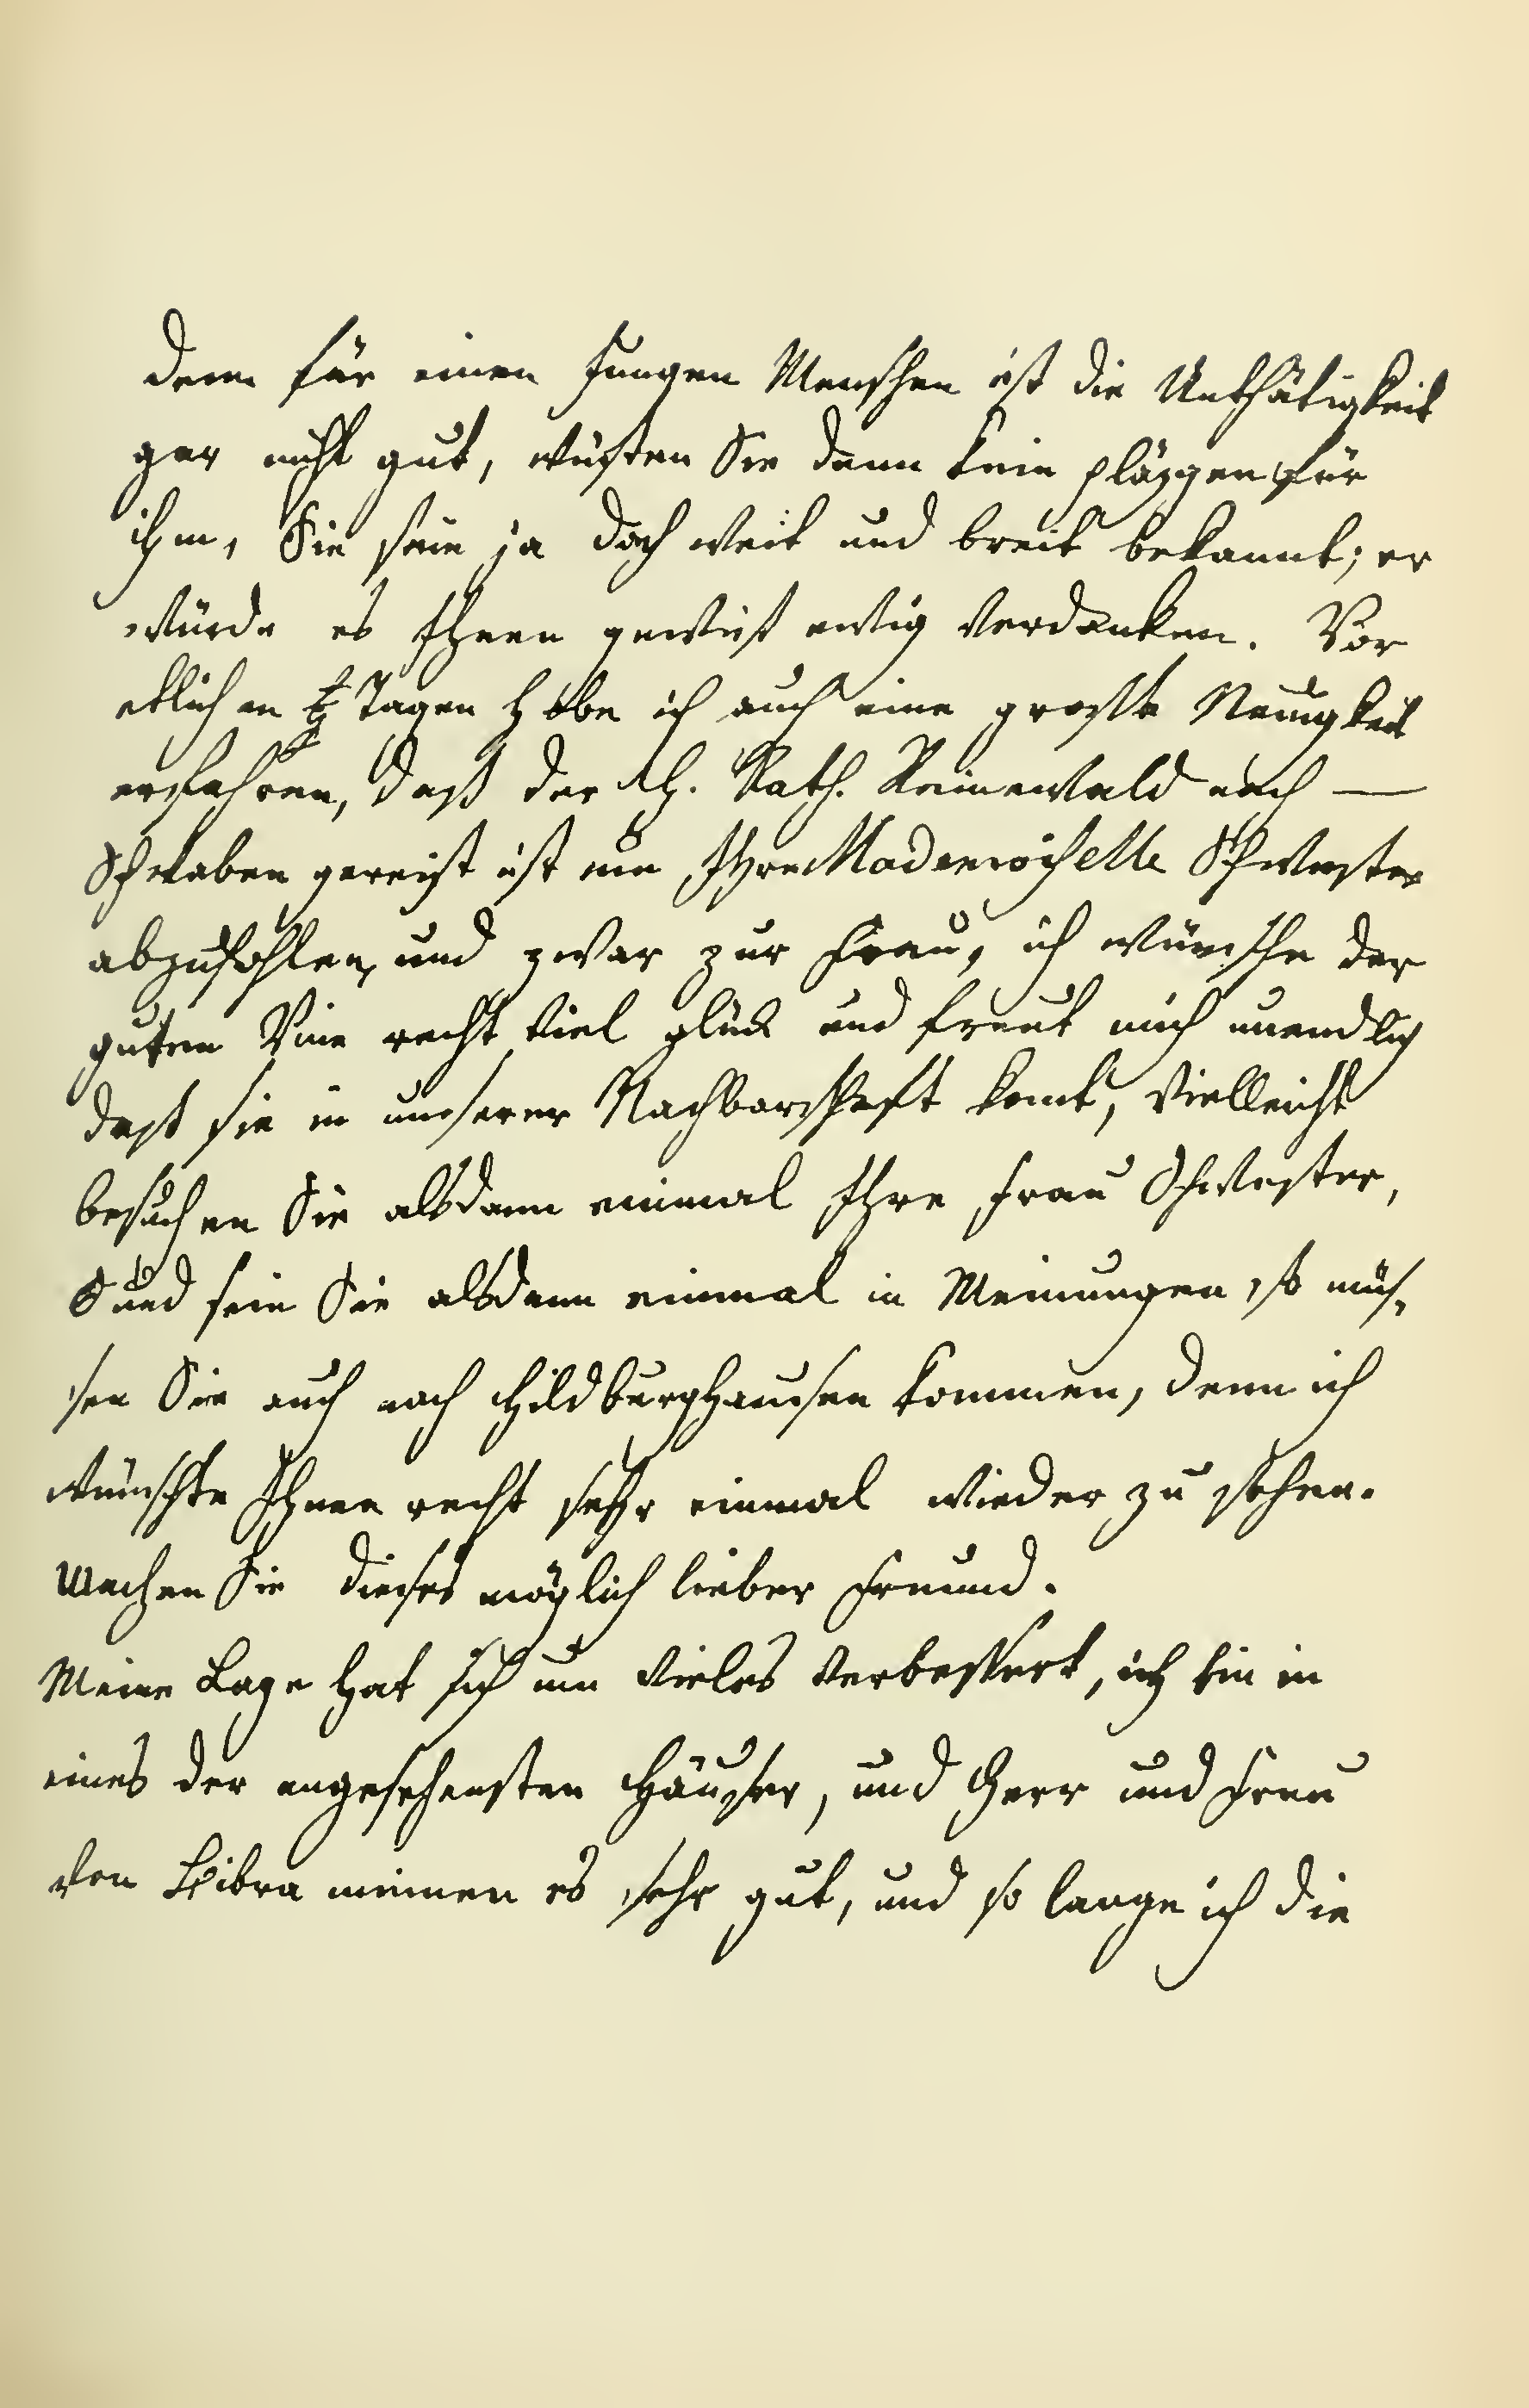 denn für einen Jungen Menschen ist die Unthätigkeit
gar nicht gut, wüsten Sie denn kein pläzgen für
ihm, Sie sein ja doch weit und breit bekannt; er
würde es Ihnen gewiest ewig verdanken. Vor
etlichen Tagen habe ich auch eine groste Neuigkeit
erfahren, daß der H. Rath. Reinewald nach —
Schwaben gereist ist um Ihre Mademoiselle Schwester
abzuhohlen, und zwar zur Frau, ich wünsche der
guten Vine recht viel glück und freut mich unendlich
dast sie in unserer Nachbarschaft komt, vielleicht
besuchen Sie alsdann einmal Ihre Frau Schwester,
und sein Sie alsdann einmal in Meinungen, so müs-
sen Sie auch nach Hildburghausen kommen, denn ich
wünschte Ihnen recht sehr einmal wieder zu sehen.
Machen Sie dieses möglich lieber Freund.
Meine Lage hat sich um vieles verbessert, ich bin in
eines der angesehensten Häuser, und Herr und Frau
von Bibra meinen es sehr gut, und so lange ich die